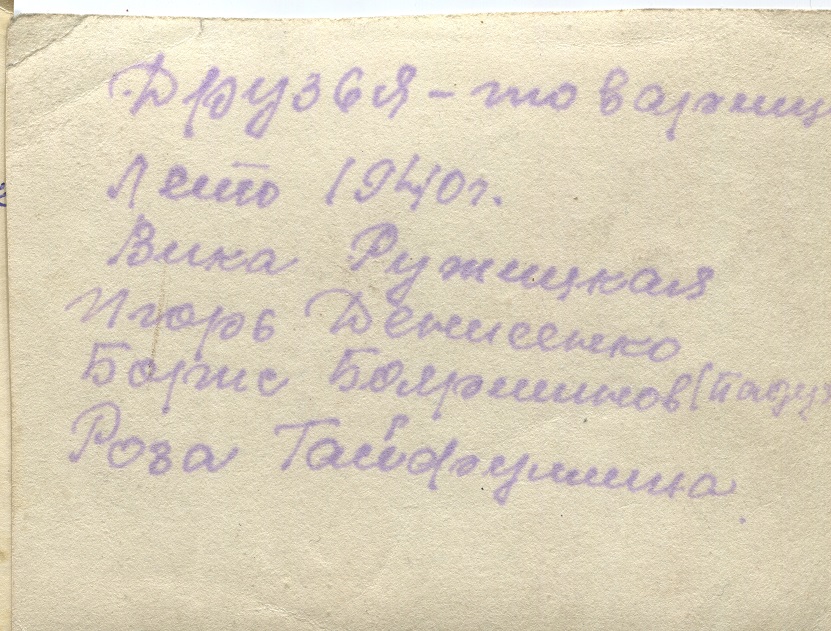 Друзья - товарищ
Лето 1940г.
Вика Ружицкая
Игорь Денисенко
Борис Бояршинов (паду
Роза Гайфуллина